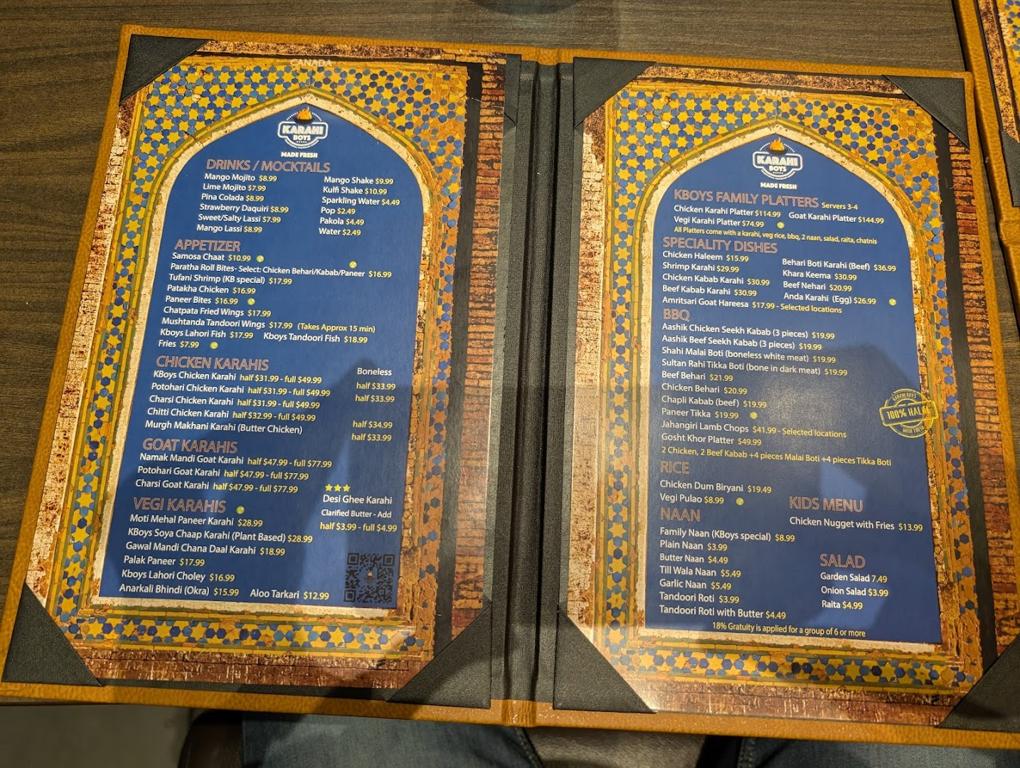 CANADA
KARAHI
BOYS
MADE FRESH
DRINKS / MOCKTAILS
Mango Mojito $8.99
Lime Mojito $7.99
Pina Colada $8.99
Strawberry Daquiri $8.99
Sweet/Salty Lassi $7.99
Mango Lassi $8.99
Mango Shake $9.99
Kulfi Shake $10.99
Sparkling Water $4.49
Pop $2.49
Pakola $4.49
Water $2.49
APPETIZER
Samosa Chaat $10.99
Paratha Roll Bites- Select: Chicken Behari/Kabab/Paneer $16.99
Tufani Shrimp (KB special) $17.99
Patakha Chicken $16.99
Paneer Bites $16.99
Chatpata Fried Wings $17.99
Mushtanda Tandoori Wings $17.99 (Takes Approx 15 min)
Kboys Lahori Fish $17.99 Kboys Tandoori Fish $18.99
Fries $7.99
CHICKEN KARAHIS Boneless
KBoys Chicken Karahi half $31.99 - full $49.99 half $33.99
Potohari Chicken Karahi half $31.99 - full $49.99 half $33.99
Charsi Chicken Karahi half $31.99 - full $49.99
Chitti Chicken Karahi half $32.99 - full $49.99 half $34.99
Murgh Makhani Karahi (Butter Chicken) half $33.99
GOAT KARAHIS
Namak Mandi Goat Karahi half $47.99 - full $77.99
Potohari Goat Karahi half $47.99 - full $77.99
Charsi Goat Karahi half $47.99 - full $77.99
Desi Ghee Karahi
Clarified Butter - Add
half $3.99 - full $4.99
VEGI KARAHIS
Moti Mehal Paneer Karahi $28.99
KBoys Soya Chaap Karahi (Plant Based) $28.99
Gawal Mandi Chana Daal Karahi $18.99
Palak Paneer $17.99
Kboys Lahori Choley $16.99
Anarkali Bhindi (Okra) $15.99 Aloo Tarkari $12.99
CANADA
KARAHI
BOYS
MADE FRESH
KBOYS FAMILY PLATTERS Servers 3-4
Chicken Karahi Platter $114.99 Goat Karahi Platter $144.99
Vegi Karahi Platter $74.99
All Platters come with a karahi, veg rice, bbq, 2 naan, salad, raita, chatnis
SPECIALITY DISHES
Chicken Haleem $15.99
Shrimp Karahi $29.99
Chicken Kabab Karahi $30.99
Beef Kabab Karahi $30.99
Amritsari Goat Hareesa $17.99 - Selected locations
Behari Boti Karahi (Beef) $36.99
Khara Keema $30.99
Beef Nehari $20.99
Anda Karahi (Egg) $26.99
BBQ
Aashik Chicken Seekh Kabab (3 pieces) $19.99
Aashik Beef Seekh Kabab (3 pieces) $19.99
Shahi Malai Boti (boneless white meat) $19.99
Sultan Rahi Tikka Boti (bone in dark meat) $19.99
Beef Behari $21.99
Chicken Behari $20.99
Chapli Kabab (beef) $19.99
Paneer Tikka $19.99
Jahangiri Lamb Chops $41.99 - Selected locations
Gosht Khor Platter $49.99
2 Chicken, 2 Beef Kabab +4 pieces Malai Boti +4 pieces Tikka Boti
100% HALAL
RICE
Chicken Dum Biryani $19.49
Vegi Pulao $8.99
NAAN
Family Naan (KBoys special) $8.99
Plain Naan $3.99
Butter Naan $4.49
Till Wala Naan $5.49
Garlic Naan $5.49
Tandoori Roti $3.99
Tandoori Roti with Butter $4.49
KIDS MENU
Chicken Nugget with Fries $13.99
SALAD
Garden Salad 7.49
Onion Salad $3.99
Raita $4.99
18% Gratuity is applied for a group of 6 or more